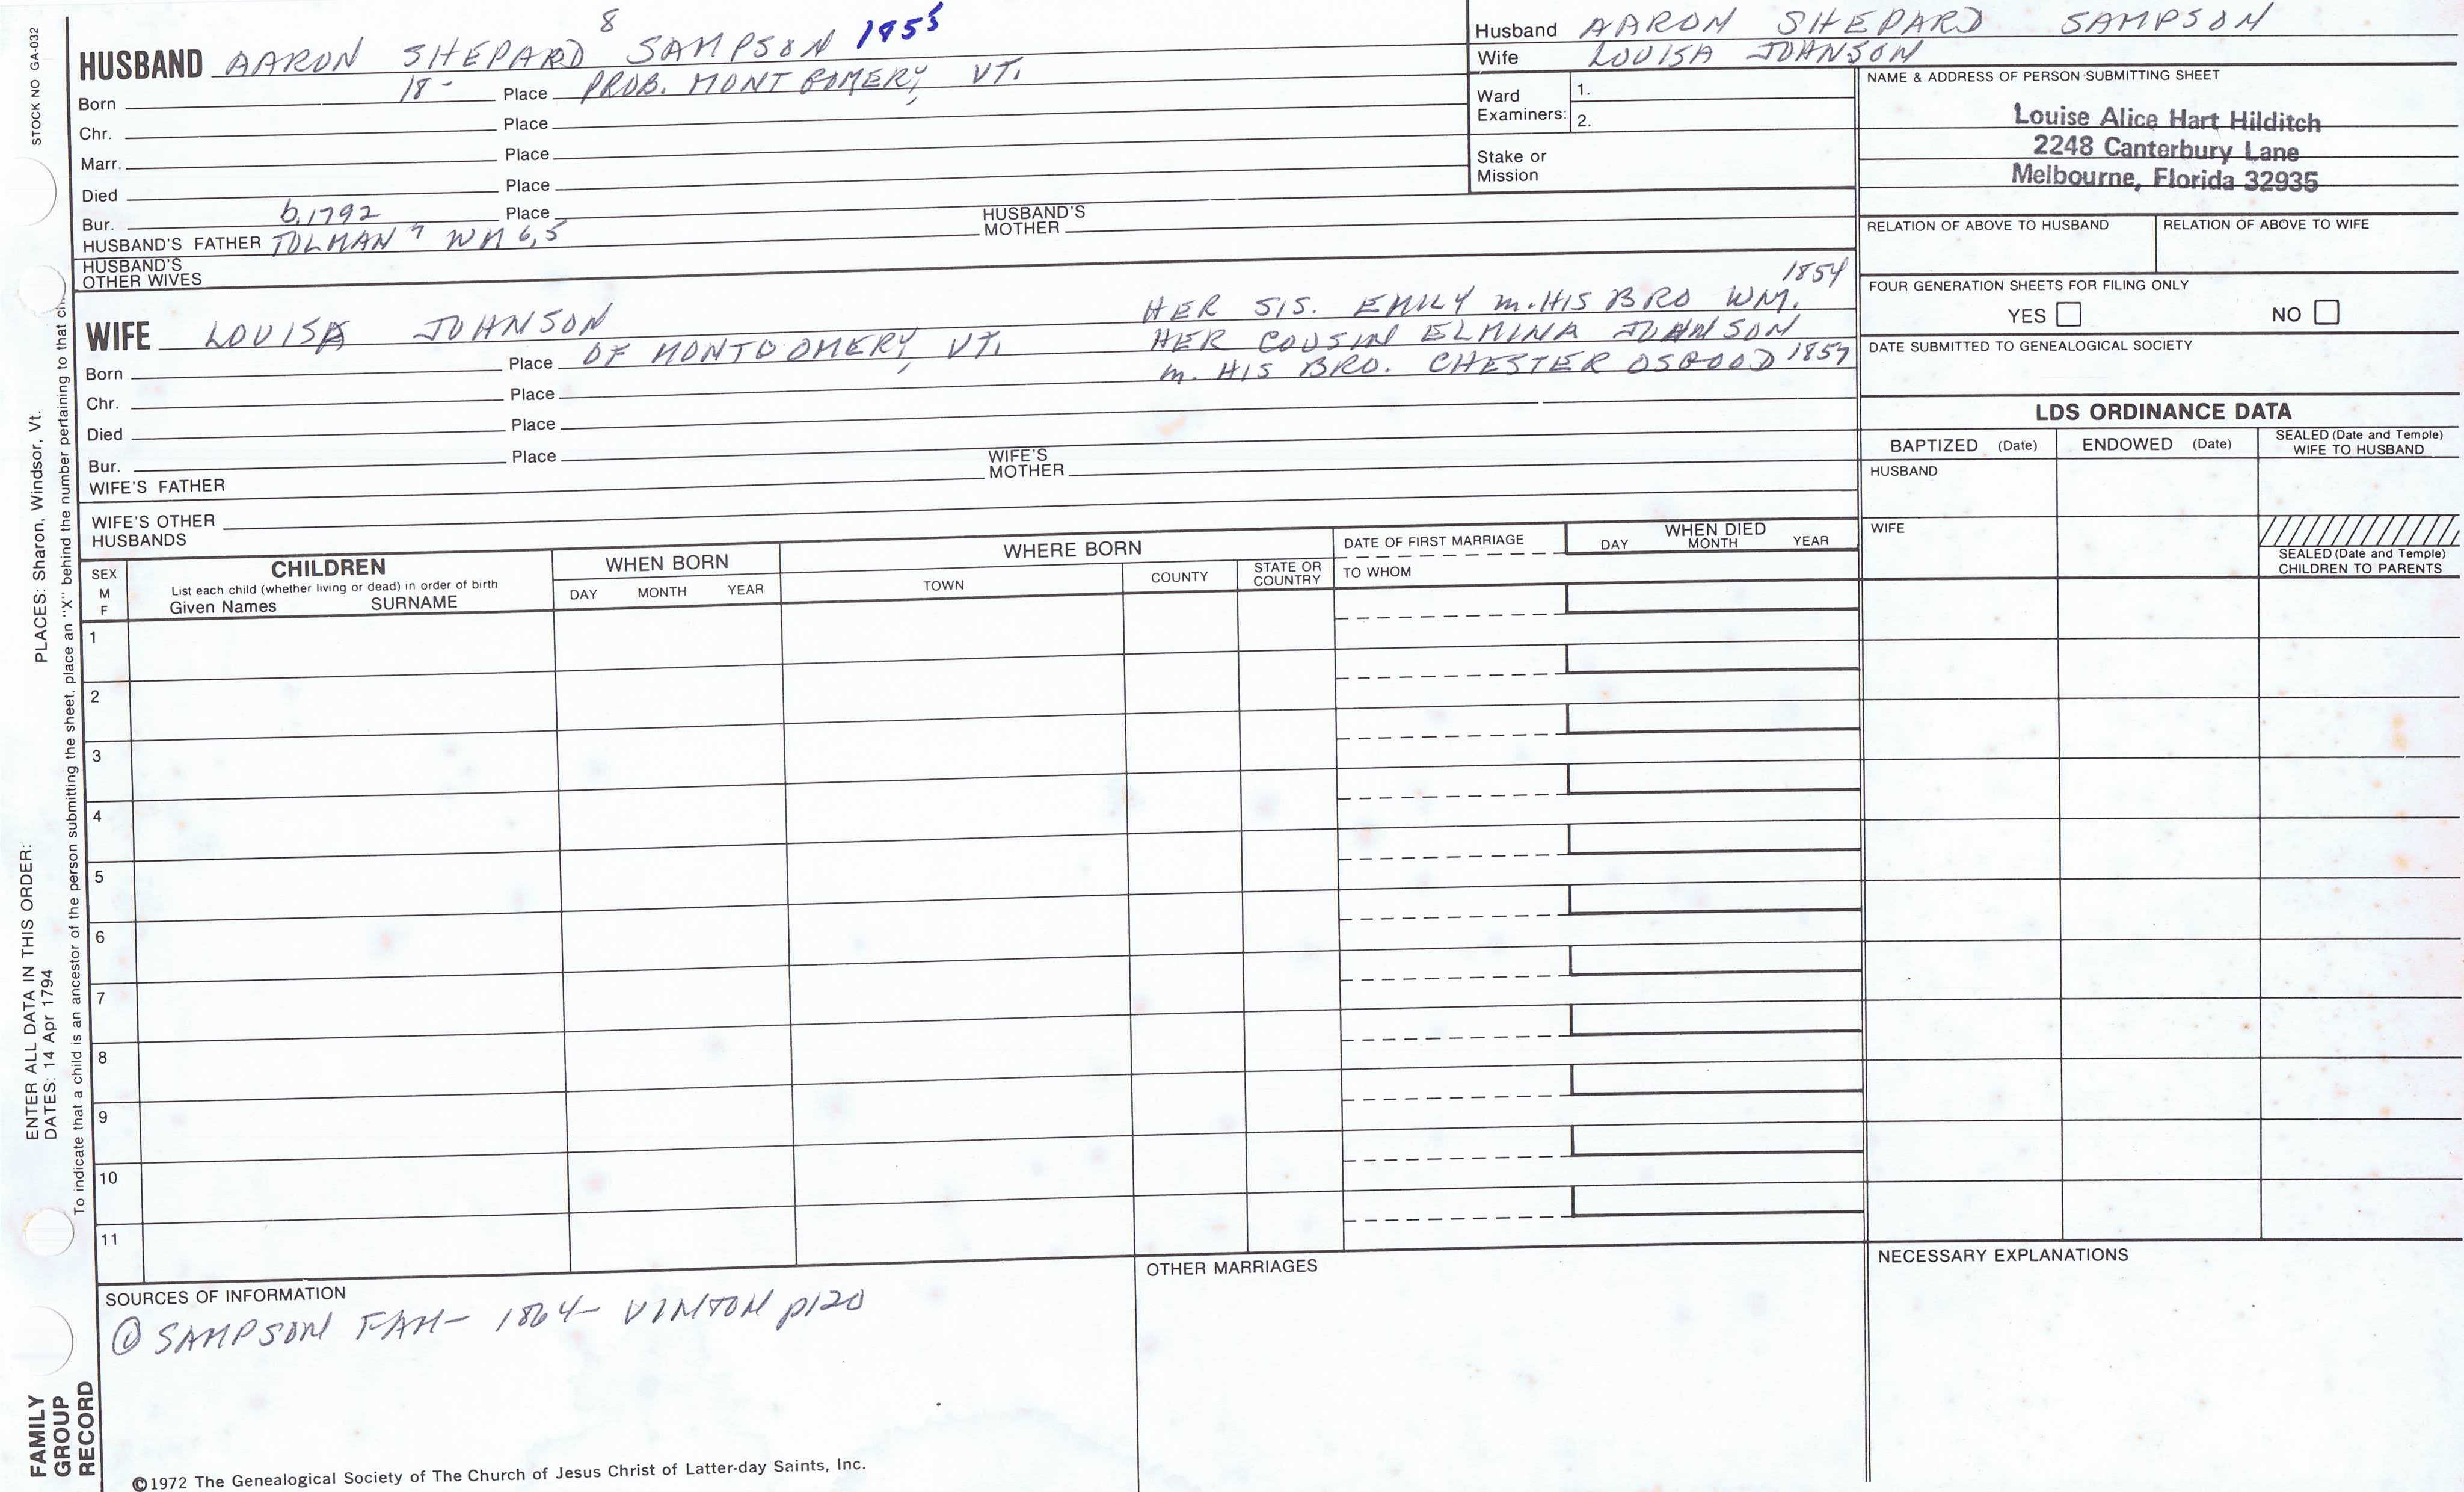 STOCK NO GA-032
HUSBAND AARON SHEPARD 8 SAMPSON 1955
Born 18- Place PROB. MONTGOMERY, VT.
Chr. Place
Marr. Place
Died Place
Bur. Place
b. 1792
HUSBAND'S FATHER TOLMAN 7 WM 6, 5 HUSBAND'S MOTHER
HUSBAND'S OTHER WIVES
WIFE LOUISA JOHNSON
Born Place OF MONTGOMERY, VT.
Chr. Place
Died Place
Bur. Place
WIFE'S FATHER WIFE'S MOTHER
WIFE'S OTHER HUSBANDS
HER SIS. EMILY m. HIS BRO WM. 1854
HER COUSIN ELMINA JOHNSON
m. HIS BRO. CHESTER OSGOOD 1857
Husband AARON SHEPARD SAMPSON
Wife LOUISA JOHNSON
Ward Examiners: 1.
2.
Stake or Mission
NAME & ADDRESS OF PERSON SUBMITTING SHEET
Louise Alice Hart Hilditch
2248 Canterbury Lane
Melbourne, Florida 32935
RELATION OF ABOVE TO HUSBAND RELATION OF ABOVE TO WIFE
FOUR GENERATION SHEETS FOR FILING ONLY
YES NO
DATE SUBMITTED TO GENEALOGICAL SOCIETY
LDS ORDINANCE DATA
BAPTIZED (Date) ENDOWED (Date) SEALED (Date and Temple) WIFE TO HUSBAND
HUSBAND
WIFE
SEALED (Date and Temple)
CHILDREN TO PARENTS
SEX
M
F
CHILDREN
List each child (whether living or dead) in order of birth
Given Names SURNAME
WHEN BORN
DAY MONTH YEAR
WHERE BORN
TOWN COUNTY STATE OR COUNTRY
DATE OF FIRST MARRIAGE
TO WHOM
WHEN DIED
DAY MONTH YEAR
1
2
3
4
5
6
7
8
9
10
11
SOURCES OF INFORMATION
① SAMPSON FAM- 1864- VINTON p120
OTHER MARRIAGES
NECESSARY EXPLANATIONS
©1972 The Genealogical Society of The Church of Jesus Christ of Latter-day Saints, Inc.
ENTER ALL DATA IN THIS ORDER:
DATES: 14 Apr 1794
PLACES: Sharon, Windsor, Vt.
To indicate that a child is an ancestor of the person submitting the sheet, place an "X" behind the number pertaining to that
FAMILY
GROUP
RECORD